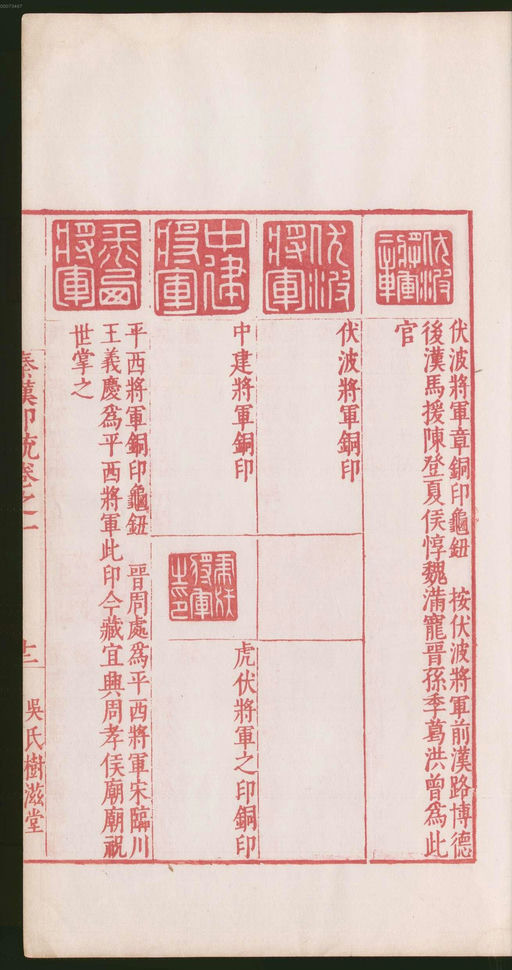 伏波將軍章
伏波將軍章銅印龜鈕　按伏波將軍前漢路博德
後漢馬援陳登夏侯惇魏滿寵晉孫季葛洪曾爲此
官
伏波將軍
伏波將軍銅印
中建將軍
中建將軍銅印
虎伏將軍之印銅印
平西將軍
平西將軍銅印龜鈕　晋周處爲平西將軍宋臨川
王義慶爲平西將軍此印今藏宜興周孝侯廟廟祝
世掌之
秦漢印統卷之一
十二
吳氏樹滋堂
00073467